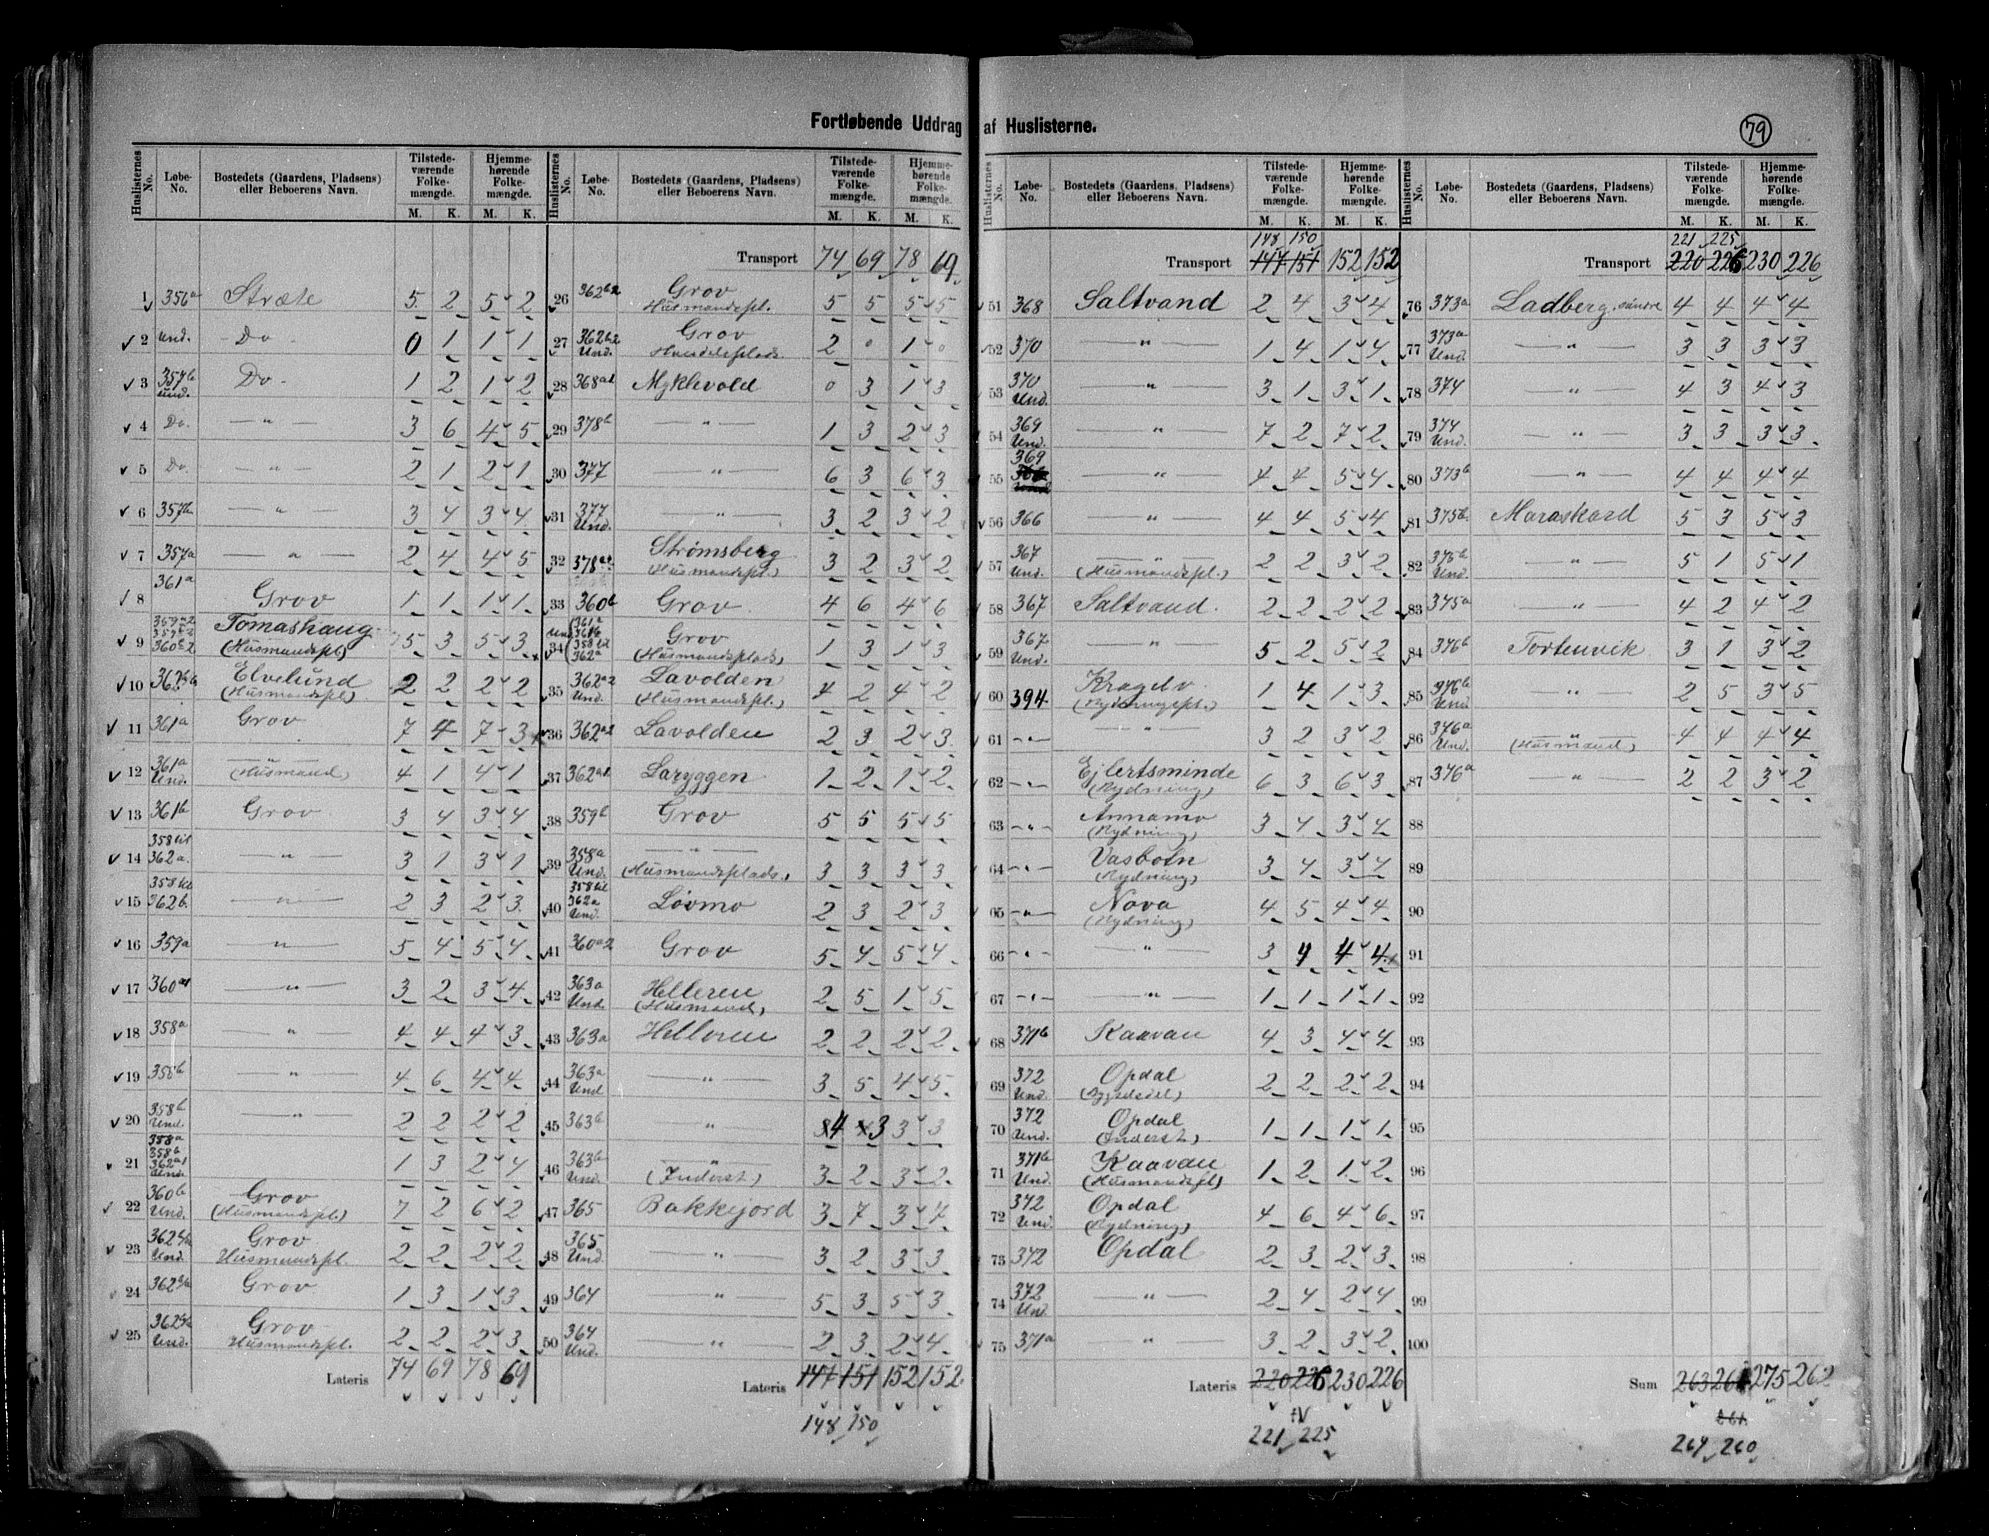 Fortløbende Uddrag af Huslisterne.
79
Huslisternes No. | Løbe-No. | Bostedets (Gaardens, Pladsens) eller Beboerens Navn. | Tilstedeværende Folkemængde. M. K. | Hjemmehørende Folkemængde. M. K.
1 356a Stræte 5 2 5 2
2 Und. Do 0 1 1 1
3 357b und. Do 1 2 1 2
4 Do. — " — 3 6 4 5
5 Do — " — 2 1 2 1
6 357b — " — 3 4 3 4
7 357a — " — 2 4 4 5
8 361a Grov 1 1 1 1
9 360b2 Tomashaug (Husmandspl) 5 3 5 3
10 Elvelund (Husmandspl) 2 2 2 2
11 361a Grov 7 4 7 3
12 361a Und. — " — (Husmand) 4 1 4 1
13 361b Grov 3 4 3 4
14 358 til 362a. — " — 3 1 3 1
15 358 til 362b. — " — 2 3 2 3
16 359a — " — 5 4 5 4
17 360a1 — " — 3 2 3 4
18 358a — " — 4 4 4 3
19 358b — " — 4 6 4 4
20 358b Und. — " — 2 2 2 2
21 358a 358b 362a1 Und. 1 3 2 4
22 360b Und. Grov (Husmandspl) 7 2 6 2
23 Und Grov Husmandspl. 2 2 2 2
24 Grov 1 3 1 3
25 Und. Grov Husmandspl. 2 2 2 3
Lateris 74 69 78 69
Huslisternes No. | Løbe-No. | Bostedets (Gaardens, Pladsens) eller Beboerens Navn. | Tilstedeværende Folkemængde. M. K. | Hjemmehørende Folkemængde. M. K.
Transport 74 69 78 69
26 362b2 Grov Husmandspl. 5 5 5 5
27 362b2 Und. Grov Huusdelsplads. 2 0 1 0
28 368a1 Myklevold 0 3 1 3
29 378b — " — 1 3 2 3
30 377 — " — 6 3 6 3
31 377 Und. — " — 3 2 3 2
32 378a2 Strømsberg (Husmandspl.) 3 2 3 2
33 360b Grov 4 6 4 6
34 Und 361a 361b 358 til 362a Grov (Husmandsplads) 1 3 1 3
35 362a2 Und. Lavolden (Husmandspl.) 4 2 4 2
36 362a2 Lavolden 2 3 2 3
37 362a1 Laryggen 1 2 1 2
38 359b Grov 5 5 5 5
39 358a Und. — " — (Husmandsplads.) 3 3 3 3
40 358 til 362a Und Løvmo 2 3 2 3
41 360a2 Grov 5 4 5 4
42 363a Und. Helleren (Husmand) 2 5 1 5
43 363a Helleren 2 2 2 2
44 363a Und — " — 3 5 4 5
45 363b " 4 3 3 3
46 363b Und. — " — (Inderst.) 3 2 3 2
47 365 Bakkejord 3 7 3 7
48 365 Und. — " — 3 2 3 3
49 364 — " — 5 3 5 3
50 364 Und. — " — 2 3 2 4
Lateris 147 151 152 152
148 150
Huslisternes No. | Løbe-No. | Bostedets (Gaardens, Pladsens) eller Beboerens Navn. | Tilstedeværende Folkemængde. M. K. | Hjemmehørende Folkemængde. M. K.
148 150
Transport 147 151 152 152
51 368 Saltvand 2 4 3 4
52 370 — " — 1 4 1 4
53 370 Und. — " — 3 1 3 1
54 369 Und. — " — 7 2 7 2
55 369 — " — 4 4 5 4
56 366 — " — 4 4 5 4
57 367 Und. — " — (Husmandspl.) 2 2 3 2
58 367 Saltvand. 2 2 2 2
59 367 Und. — " — 5 2 5 2
60 394 Kragelv (Rydningspl.) 1 4 1 3
61 -"- — " — 3 2 3 2
62 -"- Ejlertsminde (Rydning) 6 3 6 3
63 -"- Annamo (Rydning) 3 4 3 4
64 -"- Vasbotn (Rydning) 3 4 3 4
65 -"- Nova (Rydning) 4 5 4 4
66 -"- — " — 3 4 4 4
67 -"- — " — 1 1 1 1
68 371b Kaavan 4 3 4 4
69 372 Und. Opdal (Bygselsdel) 2 2 2 2
70 372 Und. Opdal (Inderst.) 1 1 1 1
71 371b Und. Kaavan (Husmandspl) 1 2 1 2
72 372 Und. Opdal (Rydning) 4 6 4 6
73 372 Opdal 2 3 2 3
74 372 Und — " — 2 4 2 4
75 371a " 3 2 3 2
Lateris 220 226 230 226
221 225
Huslisternes No. | Løbe-No. | Bostedets (Gaardens, Pladsens) eller Beboerens Navn. | Tilstedeværende Folkemængde. M. K. | Hjemmehørende Folkemængde. M. K.
221 225
Transport 220 226 230 226
76 373a Ladberg, søndre 4 4 4 4
77 373a Und. — " — 3 3 3 3
78 374 — " — 4 3 4 3
79 374 Und. — " — 3 3 3 3
80 373b — " — 4 4 4 4
81 375b. Maraskard 5 3 5 3
82 375b Und. — " — 5 1 5 1
83 375a — " — 4 2 4 2
84 376b Tortenvik 3 1 3 2
85 376b Und. — " — 2 5 3 5
86 376a Und. — " — (Husmand) 4 4 4 4
87 376a — " — 2 2 3 2
88
89
90
91
92
93
94
95
96
97
98
99
100
Sum 263 261 275 262
261
264 260